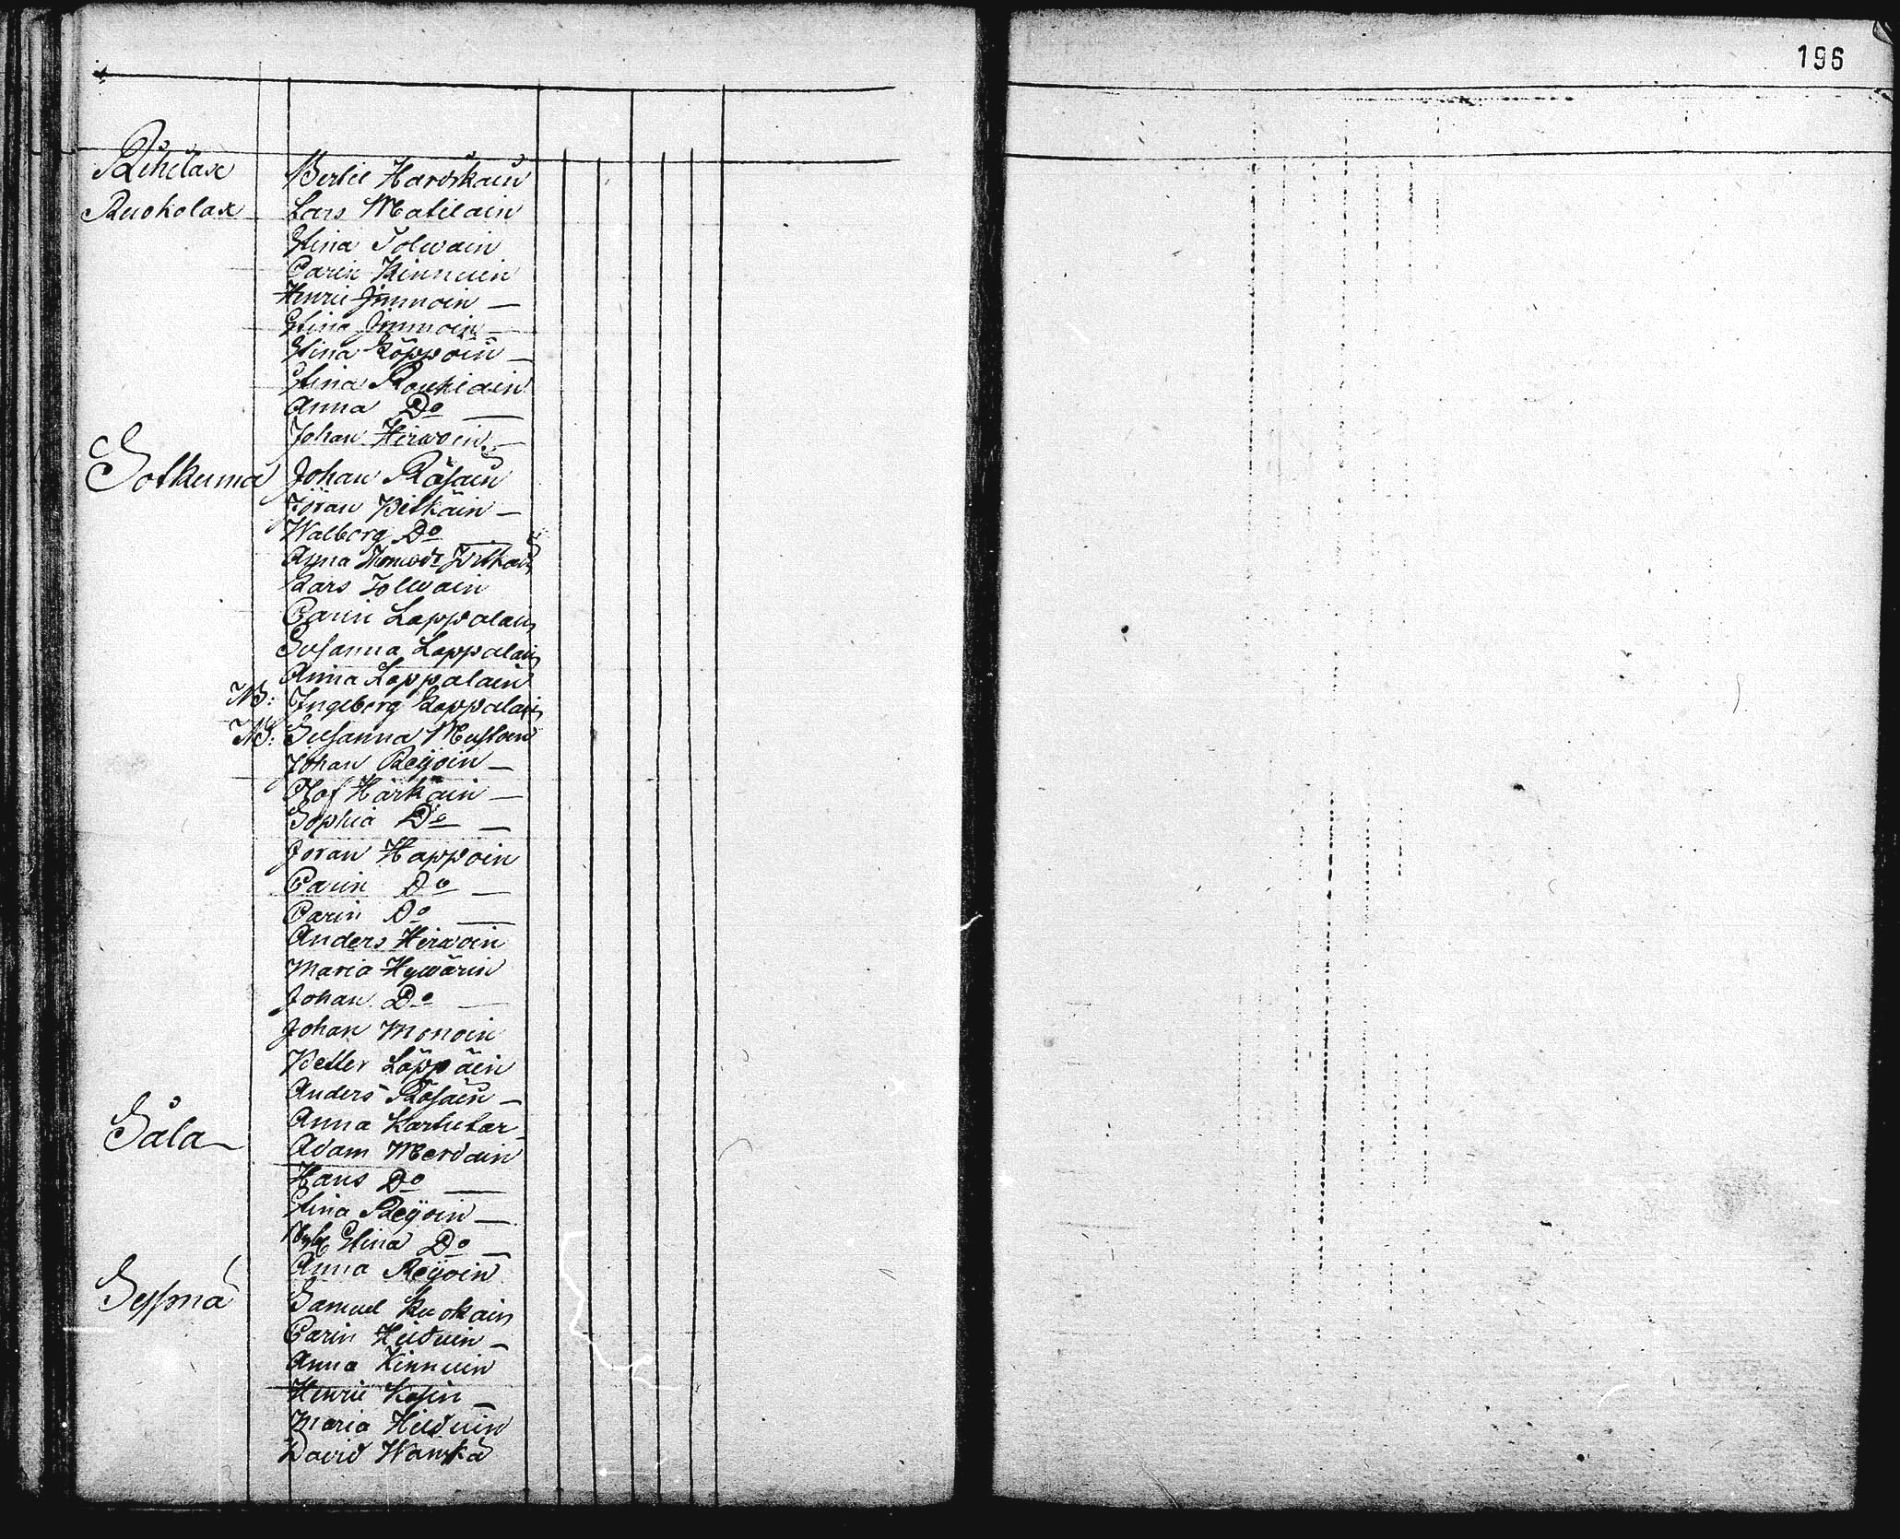 196
Rihilax Bertil Harðikain
Ruokolax Lars Matilain
Stina Tolwain
Carin Kinnuin
Henric Immoin —
Stina Immoin —
Stina Köppöin —
Stina Rouhiain
Anna Do —
Johan Hirwoin —
Sotkuma Johan Räsäin
Jöran Pitkäin —
Walborg Do —
Anna Pitkäin
Lars Tolwain
Carin Lappalain
Susanna Lappalain
Anna Lappalain
NB: Ingeborg Lappalain
NB: Susanna Mustoin
Johan Reijoin —
Olof Härkäin —
Sophia Do —
Jöran Happoin
Carin Do —
Carin Do —
Anders Hirwoin
Maria Hywärin
Johan Do —
Johan Monoin
Petter Läppäin
Anders Räsäin —
Anna Karhutar
Såla Adam Merdain
Hans Do —
Stina Reijoin —
Stina Do —
Anna Reijoin
Syssmä Samuel Kuokain
Carin Hilduin —
Anna Kinnuin
Henric Kosin —
Maria Hilduin
David Wanska